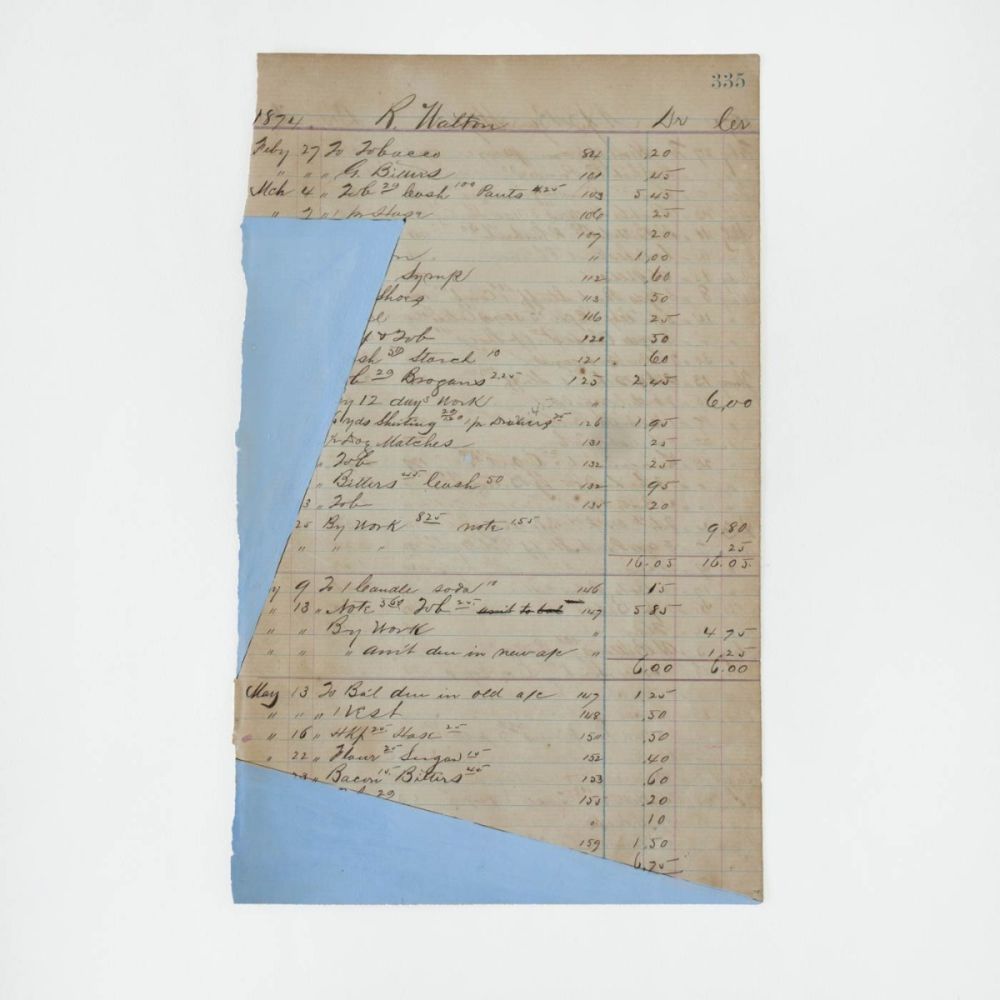 335
1874. R. Walton Dr Cr
Feby 27 To Tobacco 84 .20
" " " G. Bitters 101 .45
Mch 4 " Tob 20 Cash 100 Pants 425 103 5 45
" 7 " 1 pr Hose 106 25
107 20
" 1.00
Syrup 112 .60
Shoes 113 50
116 25
& Tob 120 50
50 Starch 10 121 60
20 Brogans 225 125 2.45
12 days Work " 6,00
yds Shirting 1 pr 126 1.95
Dog Matches 131 25
" Tob 132 25
" Bitters 45 Cash 50 132 95
3 " Tob 135 20
25 By Work 825 note 155 9.80
" " " 25
16.05 16.05
9 To 1 Candle soda 10 146 15
" 13 " Note 360 Tob 225 amt to bal 147 5.85
" " By Work " 4.75
" " " amt due in new a/c " 1.25
6.00 6.00
May 13 To Bal due in old a/c 147 1.25
" " " 1 Vest 148 .50
" 16 " Hkf 25 Hose 25 150 .50
" 22 " Flour 25 Sugar 15 152 .40
23 " Bacon 15 Bitters 45 153 .60
20 155 .20
" 10
159 1.50
6.75